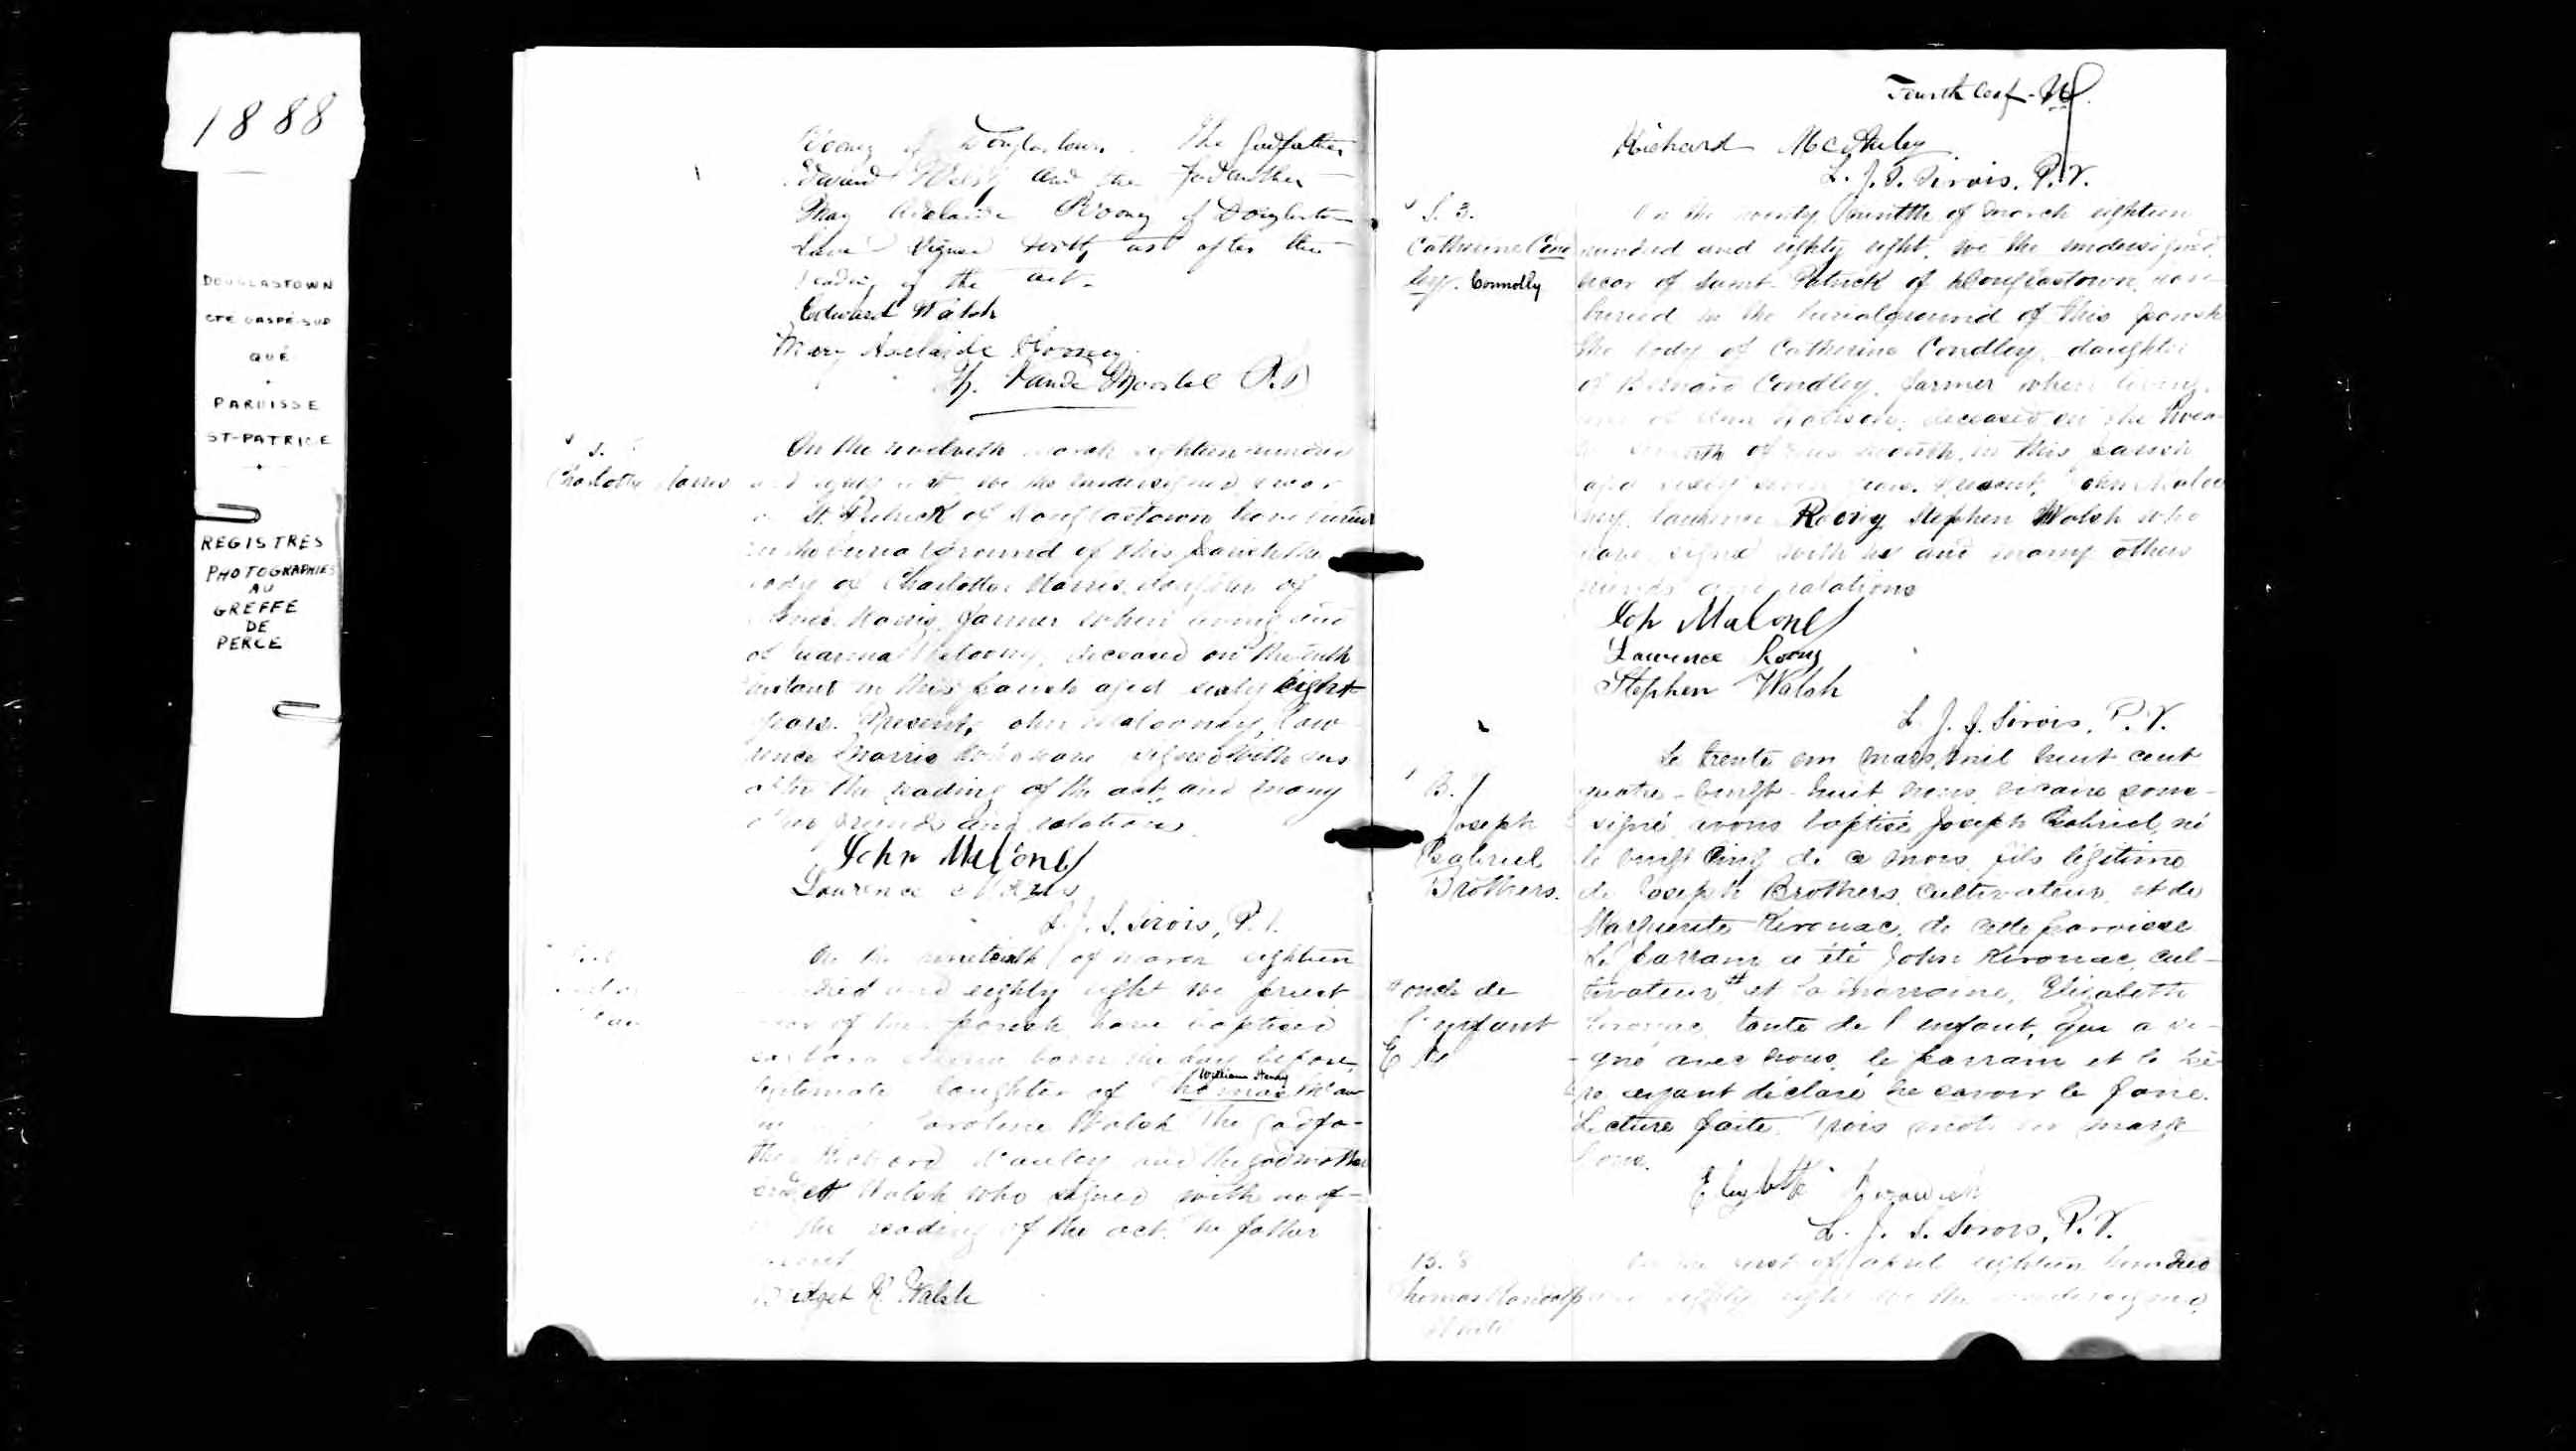 1888
DOUGLASTOWN
CTÉ GASPÉ-SUD
QUÉ
PAROISSE
ST-PATRICE
REGISTRES
PHOTOGRAPHIÉS
AU
GREFFE
DE
PERCE
of Douglastown. The Godfather
Edward Welsh and the Godmother
Mary Adelaide Roony of Douglastown
have signed with us after the
reading of the act.
Edward Walsh
Mary Adelaide Rooney
P.P.
S.
Charlotte Morris
On the twelveth march eighteen hundred
and eighty eight, we the undersigned vicar
of St. Patrick of Douglastown have buried
in the burialground of this parish the
body of Charlotte Morris, daughter of
Morris, farmer when living and
of, deceased on the tenth
instant in this parish aged sixty eight
years. Present, John Malooney, Law-
rence Morris who have signed with us
after the reading of the act, and many
other friends and relations.
John Maloney
Laurence Morris
L. J. S. Sirois, P.V.
On the nineteenth of march eighteen
hundred and eighty eight we priest
vicar of this parish have baptised
born the day before,
legitimate daughter of Thomas
William Henry
Caroline Walsh The Godfa-
ther Richard and the godmother
Bridget Walsh who signed with us af-
ter the reading of the act. The father
Bridget Walsh
Fourth leaf
Richard McAuley
L. J. S. Sirois, P.V.
S. 3.
Catherine Con
ley. Connolly
On the twenty of march eighteen
hundred and eighty eight, we the undersigned
vicar of Saint Patrick of Douglastown, have
buried in the burialground of this parish
the body of Catherine Condley, daughter
of Bernard Condley, farmer when living,
and of, deceased on the twen-
ty of this month, in this parish
aged sixty seven years. Present, John Maloo
ney, Laurence Roony Stephen Walsh who
have signed with us and many others
friends and relations
Joh Maloney
Lawrence Roony
Stephen Walsh
L. J. S. Sirois, P.V.
B. 7
Joseph
Gabriel
Brothers.
Le trente un mars mil huit cent
quatre-vingt-huit nous, vicaire sous-
signé avons baptisé Joseph Gabriel, né
le vingt cinq de ce mois, fils légitime
de Joseph Brothers, cultivateur, et de
Marguerite Kerouac, de cette paroisse
Le parrain a été John Kerouac, cul-
# oncle de
l'enfant
tivateur # et la marraine, Elizabeth
Kerouac, tante de l'enfant, qui a si-
gné avec nous, le parrain et le pè-
re ayant déclaré ne savoir le faire.
Lecture faite. Trois mots en marge
bons.
L. J. S. Sirois, P.V.
B. 8
Thomas
White
On the first of april eighteen hundred
and eighty eight we the undersigned,